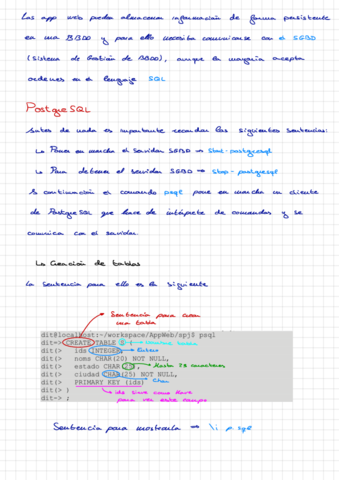 Las app web pueden almacenar información de forma persistente
en una BBDD y para ello necesita comunicarse con el SGBD
(Sistema de Gestión de BBDD), aunque la mayoría acepta
ordenes en el lenguaje SQL
PostgreSQL
Antes de nada es importante recordar las siguientes sentencias:
↳ Poner en marcha el servidor SGBD → Start-postgresql
↳ Para detener el servidor SGBD → Stop-postgresql
A continuación el comando psql pone en marcha un cliente
de PostgreSQL que hace de intérprete de comandos y se
comunica con el servidor.
↳ Creación de tablas
La sentencia para ello es la siguiente
Sentencia para crear
una tabla
dit@localhost:~/workspace/AppWeb/spj$ psql
dit=> CREATE TABLE S Nombre tabla
dit(> ids INTEGER, → Entero
dit(> noms CHAR(20) NOT NULL,
dit(> estado CHAR(25), → Hasta 25 caracteres
dit(> ciudad CHAR(25) NOT NULL, Char
dit(> PRIMARY KEY (ids)
dit(> ) ids sirve como llave
dit-> ; para ver este campo
Sentencia para mostrarla → \i p.sql